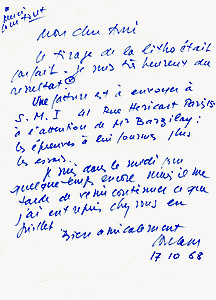 mon cher ami
le tirage de la litho était
parfait. Je suis très heureux du
résultat
Une facture est à envoyer à
S.M.I 41 Rue Hericart Paris 15
à l'attention de Mr Barzilay:
les épreuves à lui fournir plus
les essais.
Je suis dans le midi pour
quelque temps encore mais il me
tarde de venir continuer ce que
j'ai entrepris chez vous en
juillet
Bien amicalement
17 10 68